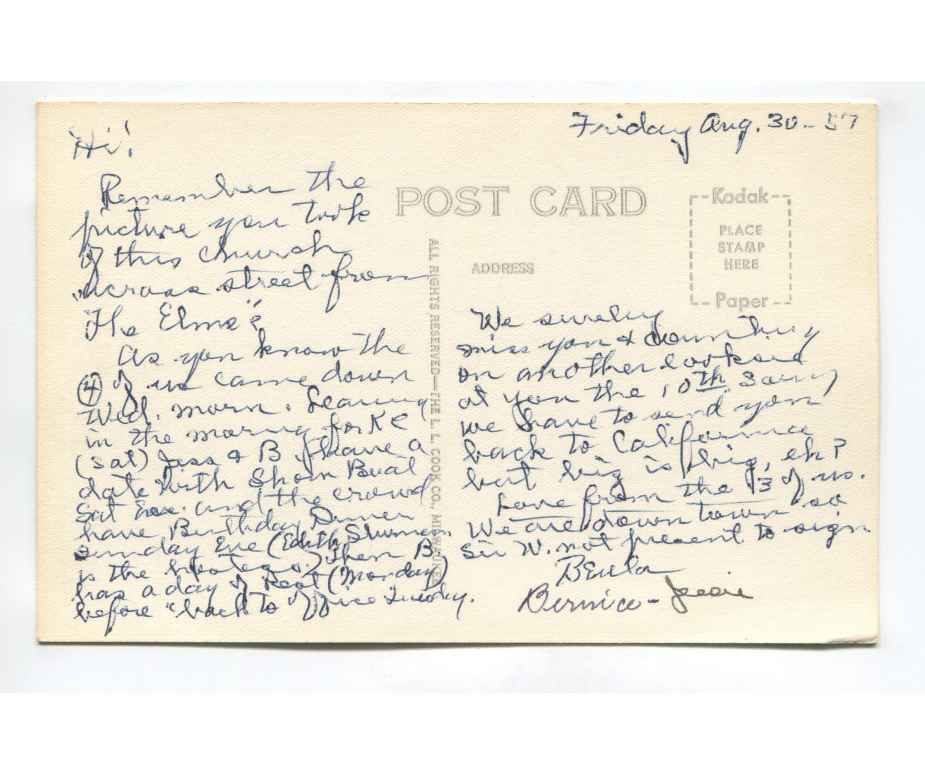 Friday Aug. 30-57
Hi!
Remember the
picture you took
of this church
across street from
"The Elms"?
As you know the
(4) of us came down
Wed. morn. Leaving
in the morning for KC
(Sat) Jess & B have a
date with Show Boat
Sat Eve. and the crowd
have Birthday Dinner
Sunday Eve (Edith
is the hostess.) Then B
has a day of Rest (Monday)
before "back to office Tuesday.
POST CARD
ADDRESS
Kodak
PLACE
STAMP
HERE
Paper
ALL RIGHTS RESERVED—THE L. L. COOK CO.,
We surely
miss you &
on another look and
at you the 10th. Sorry
we have to send you
back to California
but biz is biz, eh?
Love from the 3 of us.
We are down town so
Sir W. not present to sign
Beula
Bernice - Jessie